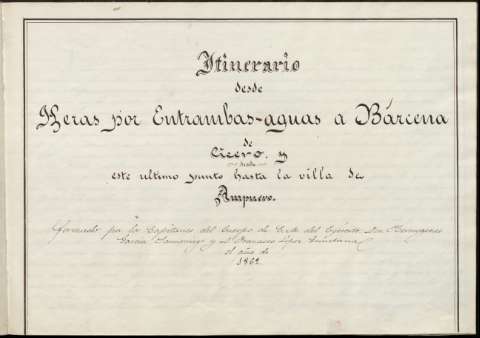 Itinerario
desde
Heras por Entrambas-aguas a Bárcena
de
Cicero y
desde
este ultimo punto hasta la villa de
Ampuero.
formado por los Capitanes del Cuerpo de E.M. del Ejército Don Hermogenes
García Samaniego y D. López Quintana
el año de
1862